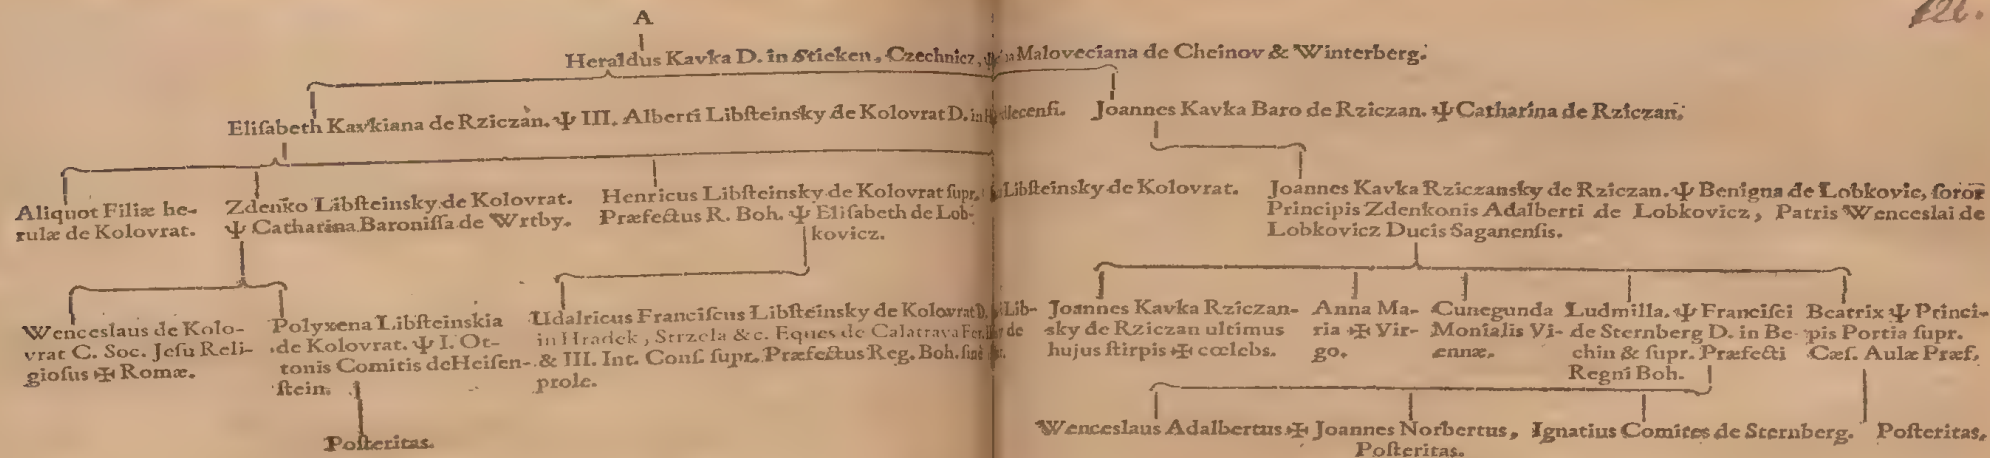 A
Heraldus Kavka D. in Stieken, Czechnicz, Maloveciana de Cheinov & Winterberg.
Eliſabeth Kavkiana de Rziczan. Ψ III. Alberti Libſteinsky de Kolovrat D. in
Joannes Kavka Baro de Rziczan. Ψ Catharina de Rziczan.
Aliquot Filiæ he-
rulæ de Kolovrat.
Zdenko Libſteinsky de Kolovrat.
Ψ Catharina Baroniſſa de Wrtby.
Henricus Libſteinsky de Kolovrat ſupr.
Præfectus R. Boh. Ψ Eliſabeth de Lob-
kovicz.
Libſteinsky de Kolovrat.
Joannes Kavka Rziczansky de Rziczan. Ψ Benigna de Lobkovic, ſoror
Principis Zdenkonis Adalberti de Lobkovicz, Patris Wenceslai de
Lobkovicz Ducis Saganenſis.
Wenceslaus de Kolo-
vrat C. Soc. Jeſu Reli-
gioſus ✠ Romæ.
Polyxena Libſteinskia
de Kolovrat. Ψ I. Ot-
tonis Comitis de Heiſen-
ſtein.
Udalricus Franciſcus Libſteinsky de Kolovrat D.
in Hradek, Strzela &c. Eques de Calatrava Fer.
& III. Int. Conſ. ſupr. Præfectus Reg. Boh. ſine
prole.
Lib-
de
Joannes Kavka Rziczan-
sky de Rziczan ultimus
hujus ſtirpis ✠ cœlebs.
Anna Ma-
ria ✠ Vir-
go.
Cunegunda
Monialis Vi-
ennæ.
Ludmilla. Ψ Franciſci
de Sternberg D. in Be-
chin & ſupr. Præfecti
Regni Boh.
Beatrix Ψ Princi-
pis Portia ſupr.
Cæſ. Aulæ Præf.
Poſteritas.
Wenceslaus Adalbertus ✠ Joannes Norbertus, Ignatius Comites de Sternberg. Poſteritas.
Poſteritas.